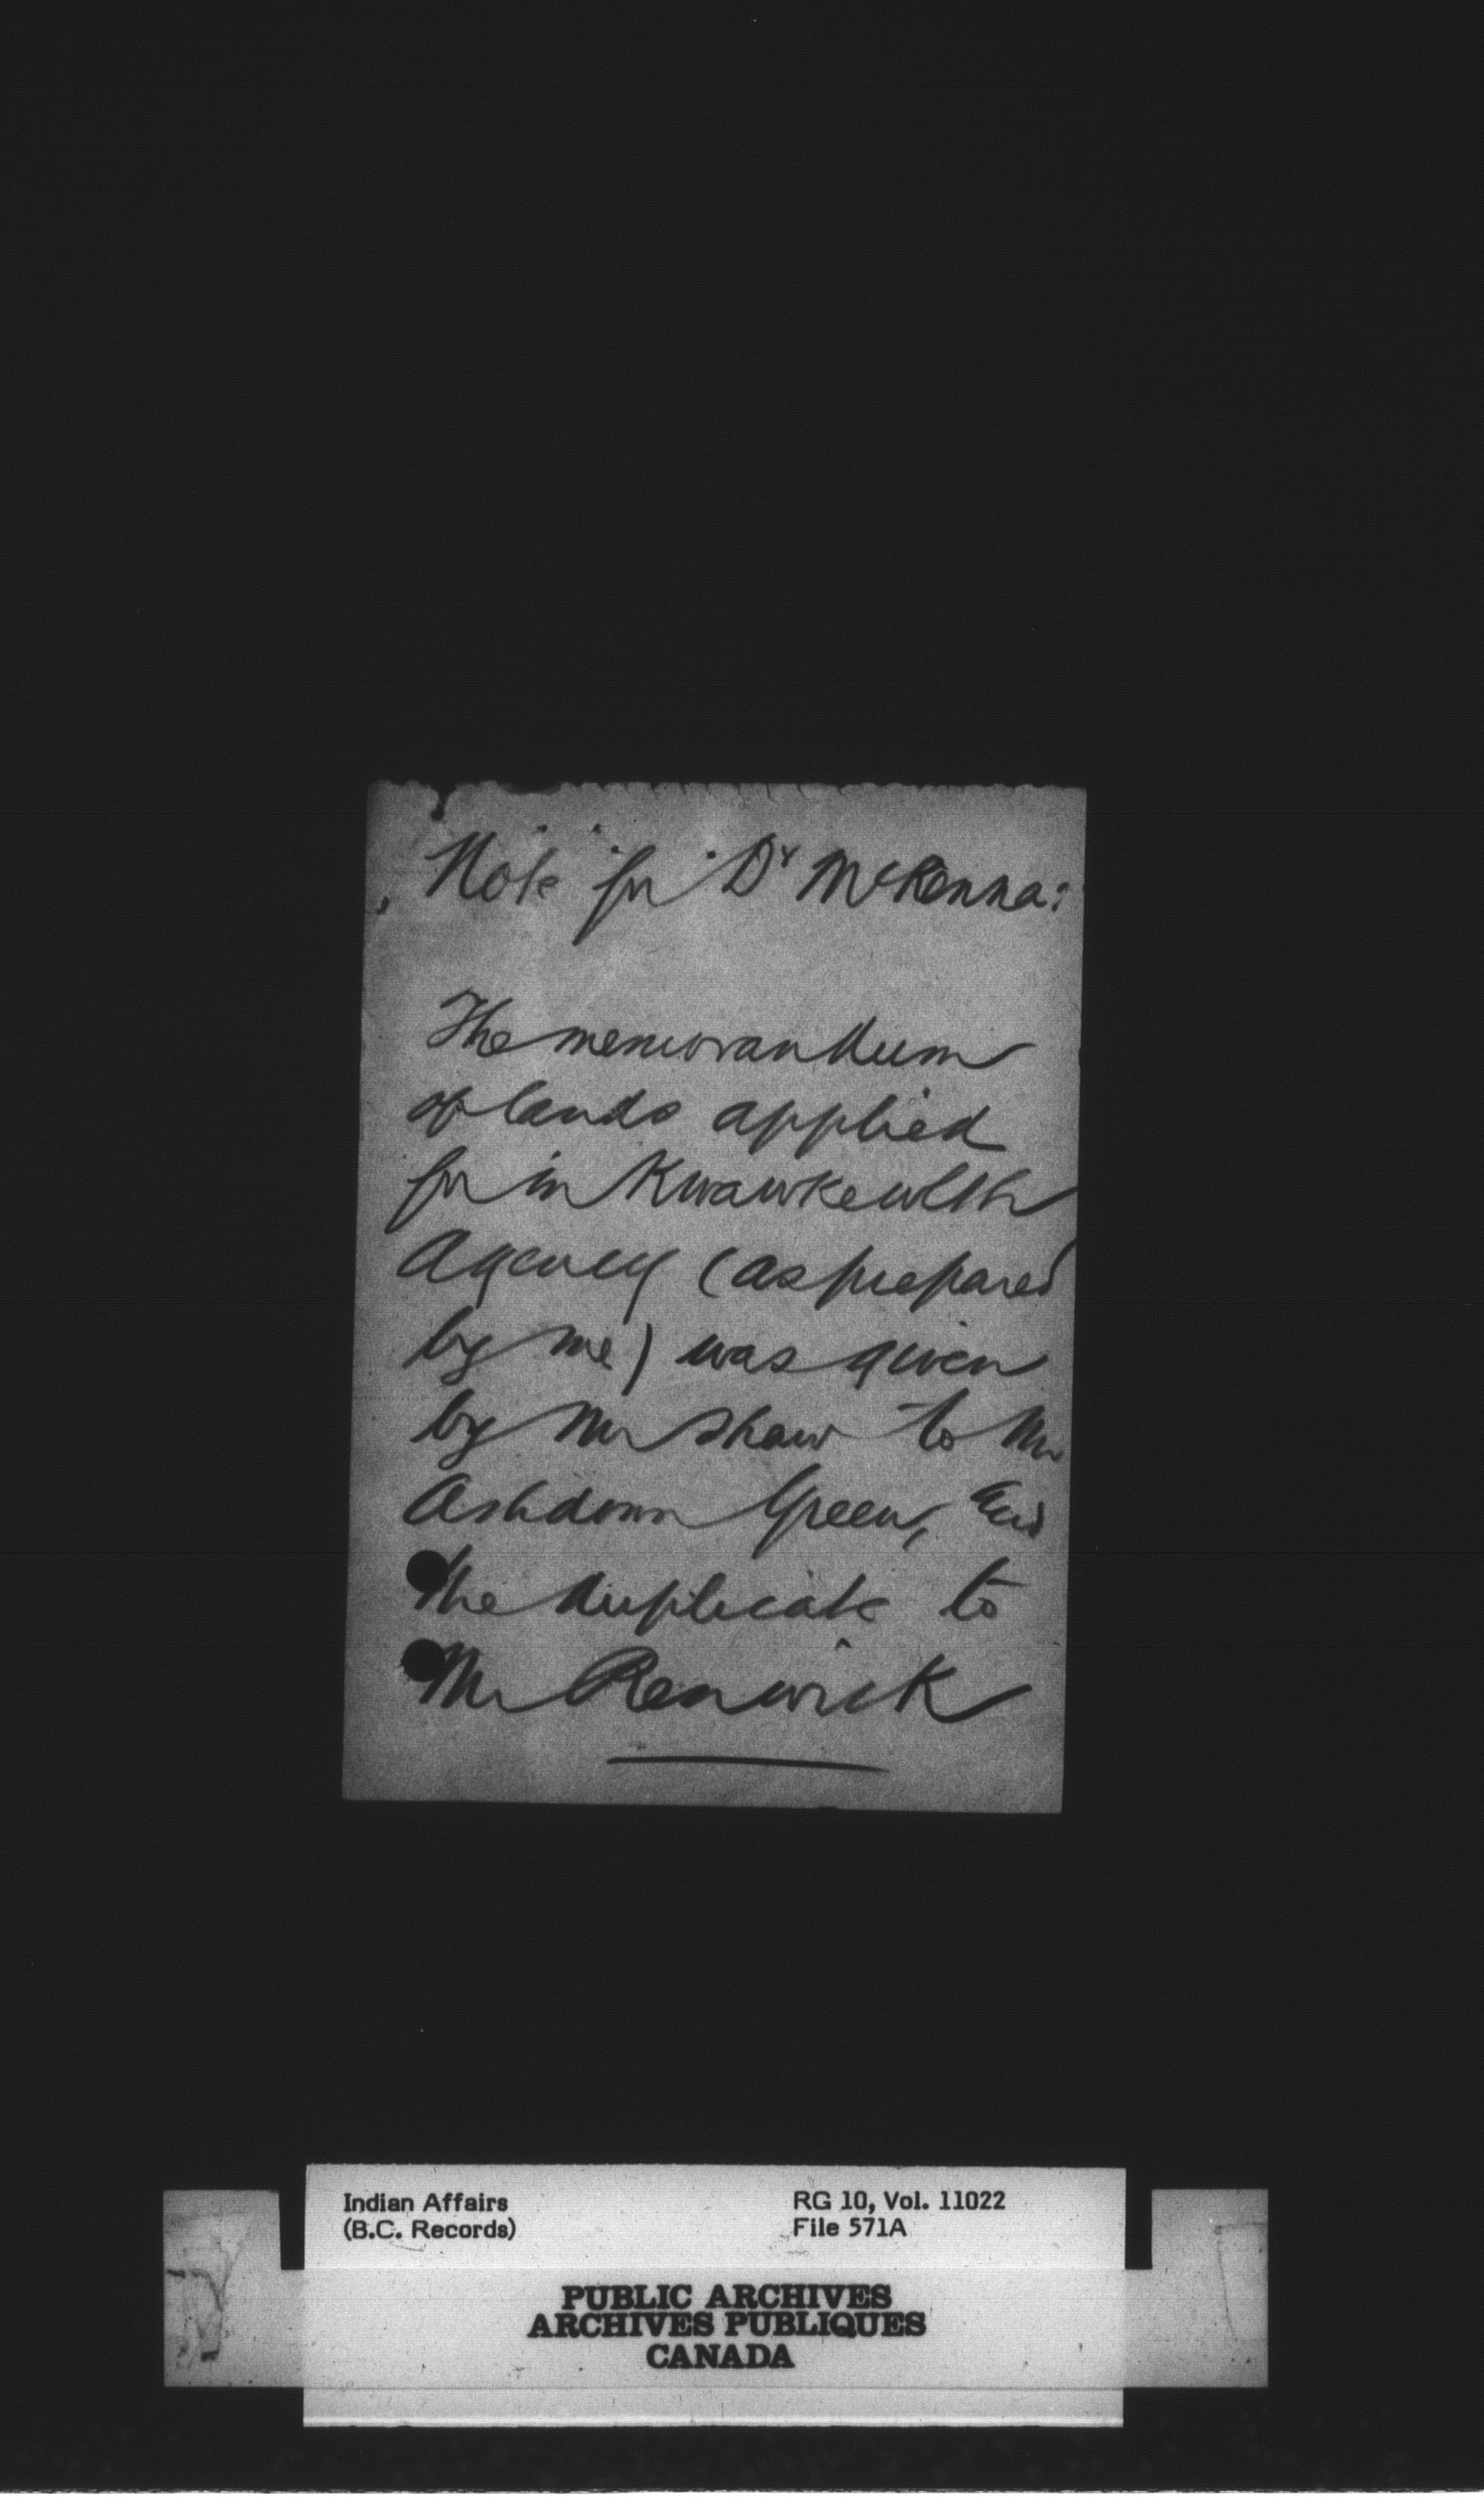 Note for Dr McKenna:
The memorandum
of lands applied
for in Kwawkewlth
Agency (as prepared
by me) was given
by Mr Shaw to Mr
Ashdown Green, and
the duplicate to
Mr Renwick
Indian Affairs
(B.C. Records)
RG 10, Vol. 11022
File 571A
PUBLIC ARCHIVES
ARCHIVES PUBLIQUES
CANADA